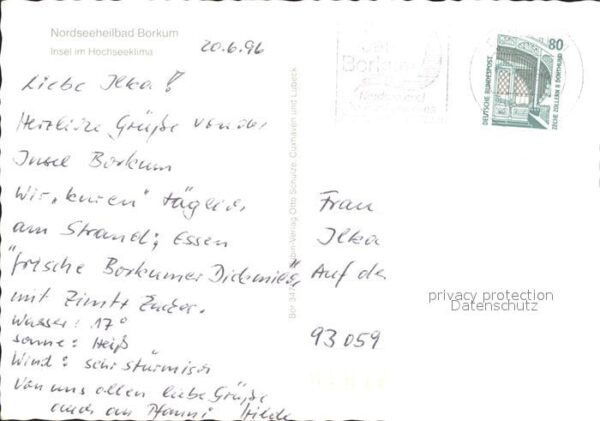 Nordseeheilbad Borkum
Insel im Hochseeklima
20.6.96
Liebe Ilka!
Herzliche Grüße von der
Insel Borkum
Wir "kuren" täglich
am Strand; Essen
"frische Borkumer Dickmilch"
mit Zimt + Zucker.
Wasser: 17°
Sonne: Heiß
Wind: sehr stürmisch
Von uns allen liebe Grüße
auch an Hilde
Verlag Otto Schulze, Cuxhaven und Lübeck
Borkum
80
DEUTSCHE BUNDESPOST
ZECHE ZOLLERN II DORTMUND
Frau
Ilka
Auf de
93059
privacy protection
Datenschutz